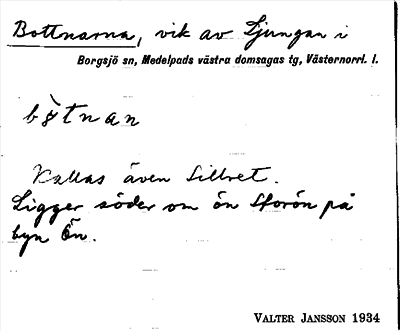 Bottnarna, vik av Ljungan i
Borgsjö sn, Medelpads västra domsagas tg, Västernorrl. l.
bòtnan
Kallas även Sillret.
Ligger söder om ön Storön på
byn Ön.
VALTER JANSSON 1934